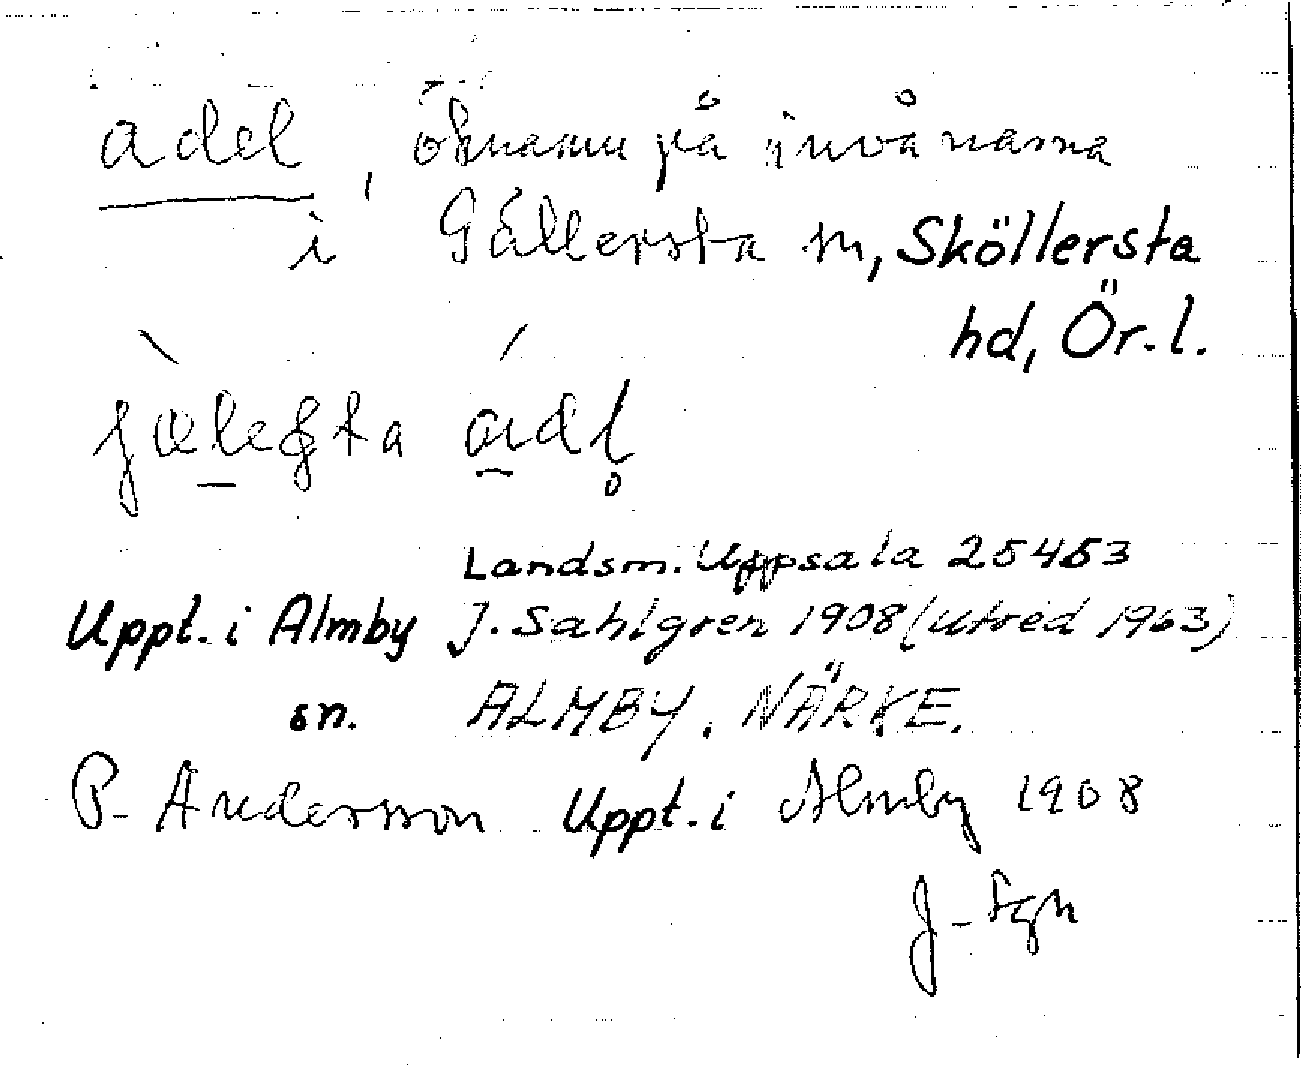 adel, öknamn på invånarna
i Gällersta sn, Sköllersta
hd, Ör.l.
Landsm. Uppsala 25453
Uppt. i Almby J. Sahlgren 1908 (utred 1963)
sn. ALMBY. NÄRKE.
P. Andersson Uppt. i Almby 1908
J. Sgn